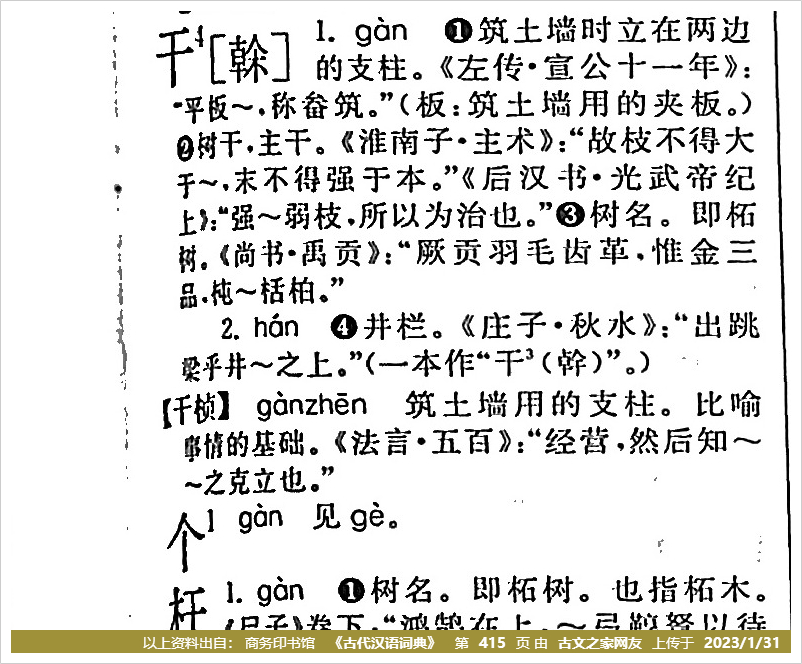 干⁴[榦] 1. gàn ❶筑土墙时立在两边
的支柱。《左传·宣公十一年》：
“平板～，称畚筑。”（板：筑土墙用的夹板。）
❷树干，主干。《淮南子·主术》：“故枝不得大
于～，末不得强于本。”《后汉书·光武帝纪
上》：“强～弱枝，所以为治也。”❸树名。即柘
树。《尚书·禹贡》：“厥贡羽毛齿革，惟金三
品，杶～栝柏。”
2. hán ❹井栏。《庄子·秋水》：“出跳
梁乎井～之上。”（一本作“干³（幹）”。）
【干桢】 gànzhēn 筑土墙用的支柱。比喻
事情的基础。《法言·五百》：“经营，然后知～
～之克立也。”
个1 gàn 见gè。
杆 1. gàn ❶树名。即柘树。也指柘木。
《尸子》卷下：“鸿鹄在上，～弓鞟弩以待
以上资料出自： 商务印书馆 《古代汉语词典》 第 415 页 由 古文之家网友 上传于 2023/1/31